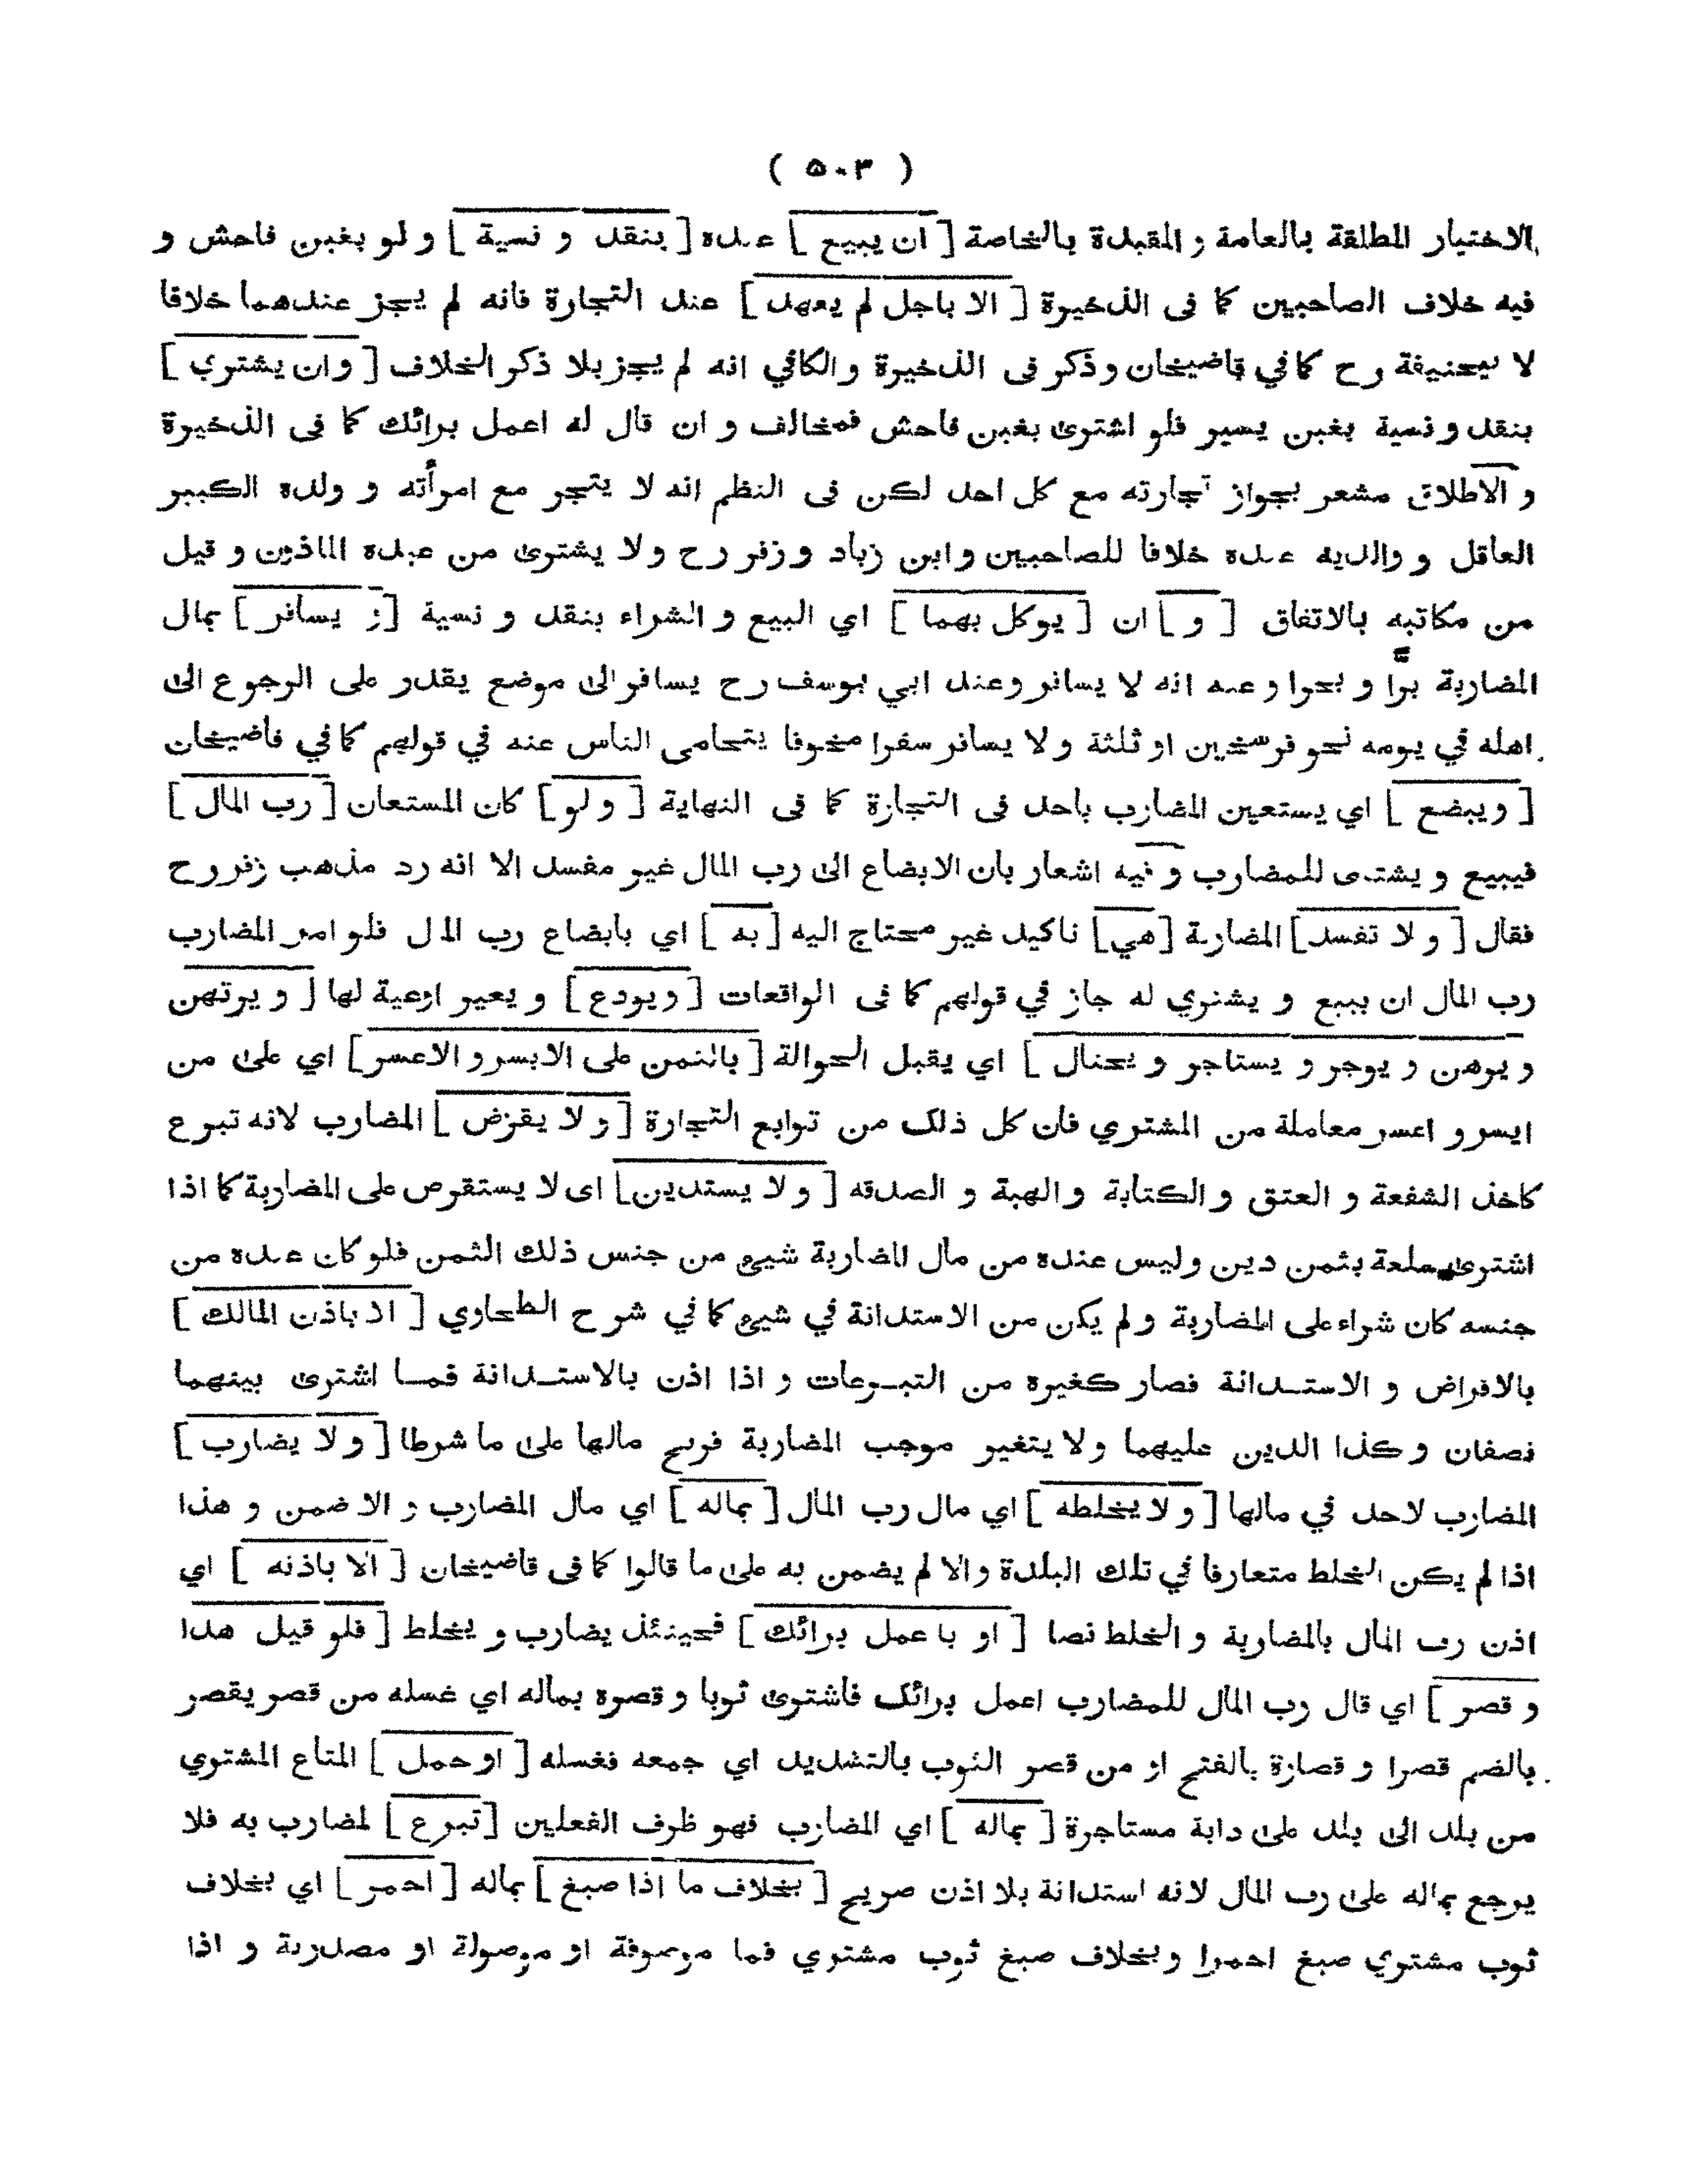 ( ۵۰۳ )
الاختيار المطلقة بالعامة و المقيدة بالخاصة [ ان يبيع ] عنده [ بنقد و نسية ] و لو بغبن فاحش و
فيه خلاف الصاحبين كما فى الذخيرة [ الا باجل لم يعهد ] عند التجارة فانه لم يجز عندهما خلافا
لا بيحنيفة رح كما في قاضيخان و ذكر فى الذخيرة و الكافي انه لم يجز بلا ذكر الخلاف [ و ان يشتري ]
بنقد و نسية بغبن يسير فلو اشترى بغبن فاحش فمخالف و ان قال له اعمل برائك كما فى الذخيرة
و الاطلاق مشعر بجواز تجارته مع كل احد لكن فى النظم انه لا يتجر مع امرأته و ولده الكبير
العاقل و والديه عنده خلافا للصاحبين و ابن زياد و زفر رح و لا يشترى من عبده الماذون و قيل
من مكاتبه بالاتفاق [ و ] ان [ يوكل بهما ] اي البيع و الشراء بنقد و نسية [ و يسافر ] بمال
المضاربة برا و بحرا و عنه انه لا يسافر و عند ابي يوسف رح يسافر الى موضع يقدر على الرجوع الى
اهله في يومه نحو فرسخين او ثلثة و لا يسافر سفرا مخوفا يتحامى الناس عنه في قولهم كما في قاضيخان
[ و يبضع ] اي يستعين المضارب باحد فى التجارة كما فى النهاية [ و لو ] كان المستعان [ رب المال ]
فيبيع و يشترى للمضارب و فيه اشعار بان الابضاع الى رب المال غير مفسد الا انه رد مذهب زفر رح
فقال [ و لا تفسد ] المضاربة [ هي ] تاكيد غير محتاج اليه [ به ] اي بابضاع رب المال فلو امر المضارب
رب المال ان يبيع و يشتري له جاز في قولهم كما فى الواقعات [ و يودع ] و يعير اوعية لها [ و يرتهن
و يرهن و يوجر و يستاجر و يحتال ] اي يقبل الحوالة [ بالثمن على الايسر و الاعسر ] اي على من
ايسر و اعسر معاملة من المشتري فان كل ذلك من توابع التجارة [ و لا يقرض ] المضارب لانه تبرع
كاخذ الشفعة و العتق و الكتابة و الهبة و الصدقه [ و لا يستدين ] اى لا يستقرض على المضاربة كما اذا
اشترى سلعة بثمن دين و ليس عنده من مال المضاربة شيئ من جنس ذلك الثمن فلو كان عنده من
جنسه كان شراء على المضاربة و لم يكن من الاستدانة في شيئ كما في شرح الطحاوي [ الا باذن المالك ]
بالاقراض و الاستدانة فصار كغيره من التبرعات و اذا اذن بالاستدانة فما اشترى بينهما
نصفان و كذا الدين عليهما و لا يتغير موجب المضاربة فربح مالها على ما شرطا [ و لا يضارب ]
المضارب لاحد في مالها [ و لا يخلطه ] اي مال رب المال [ بماله ] اي مال المضارب و الا ضمن و هذا
اذا لم يكن الخلط متعارفا في تلك البلدة و الا لم يضمن به على ما قالوا كما فى قاضيخان [ الا باذنه ] اي
اذن رب المال بالمضاربة و الخلط نصا [ او با عمل برائك ] فحينئذ يضارب و يخلط [ فلو قيل هذا
و قصر ] اي قال رب المال للمضارب اعمل برائك فاشترى ثوبا و قصره بماله اي غسله من قصر يقصر
بالضم قصرا و قصارة بالفتح او من قصر الثوب بالتشديد اي جمعه فغسله [ او حمل ] المتاع المشتري
من بلد الى بلد على دابة مستاجرة [ بماله ] اي المضارب فهو ظرف الفعلين [ تبرع ] لمضارب به فلا
يرجع بماله على رب المال لانه استدانة بلا اذن صريح [ بخلاف ما اذا صبغ ] بماله [ احمر ] اي بخلاف
ثوب مشتري صبغ احمرا و بخلاف صبغ ثوب مشتري فما موصوفة او موصولة او مصدرية و اذا